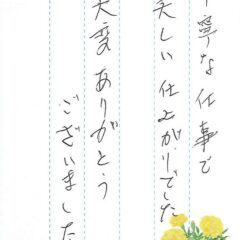 寧な仕事で
美しい仕上がりでした
大変ありがとう
ございました